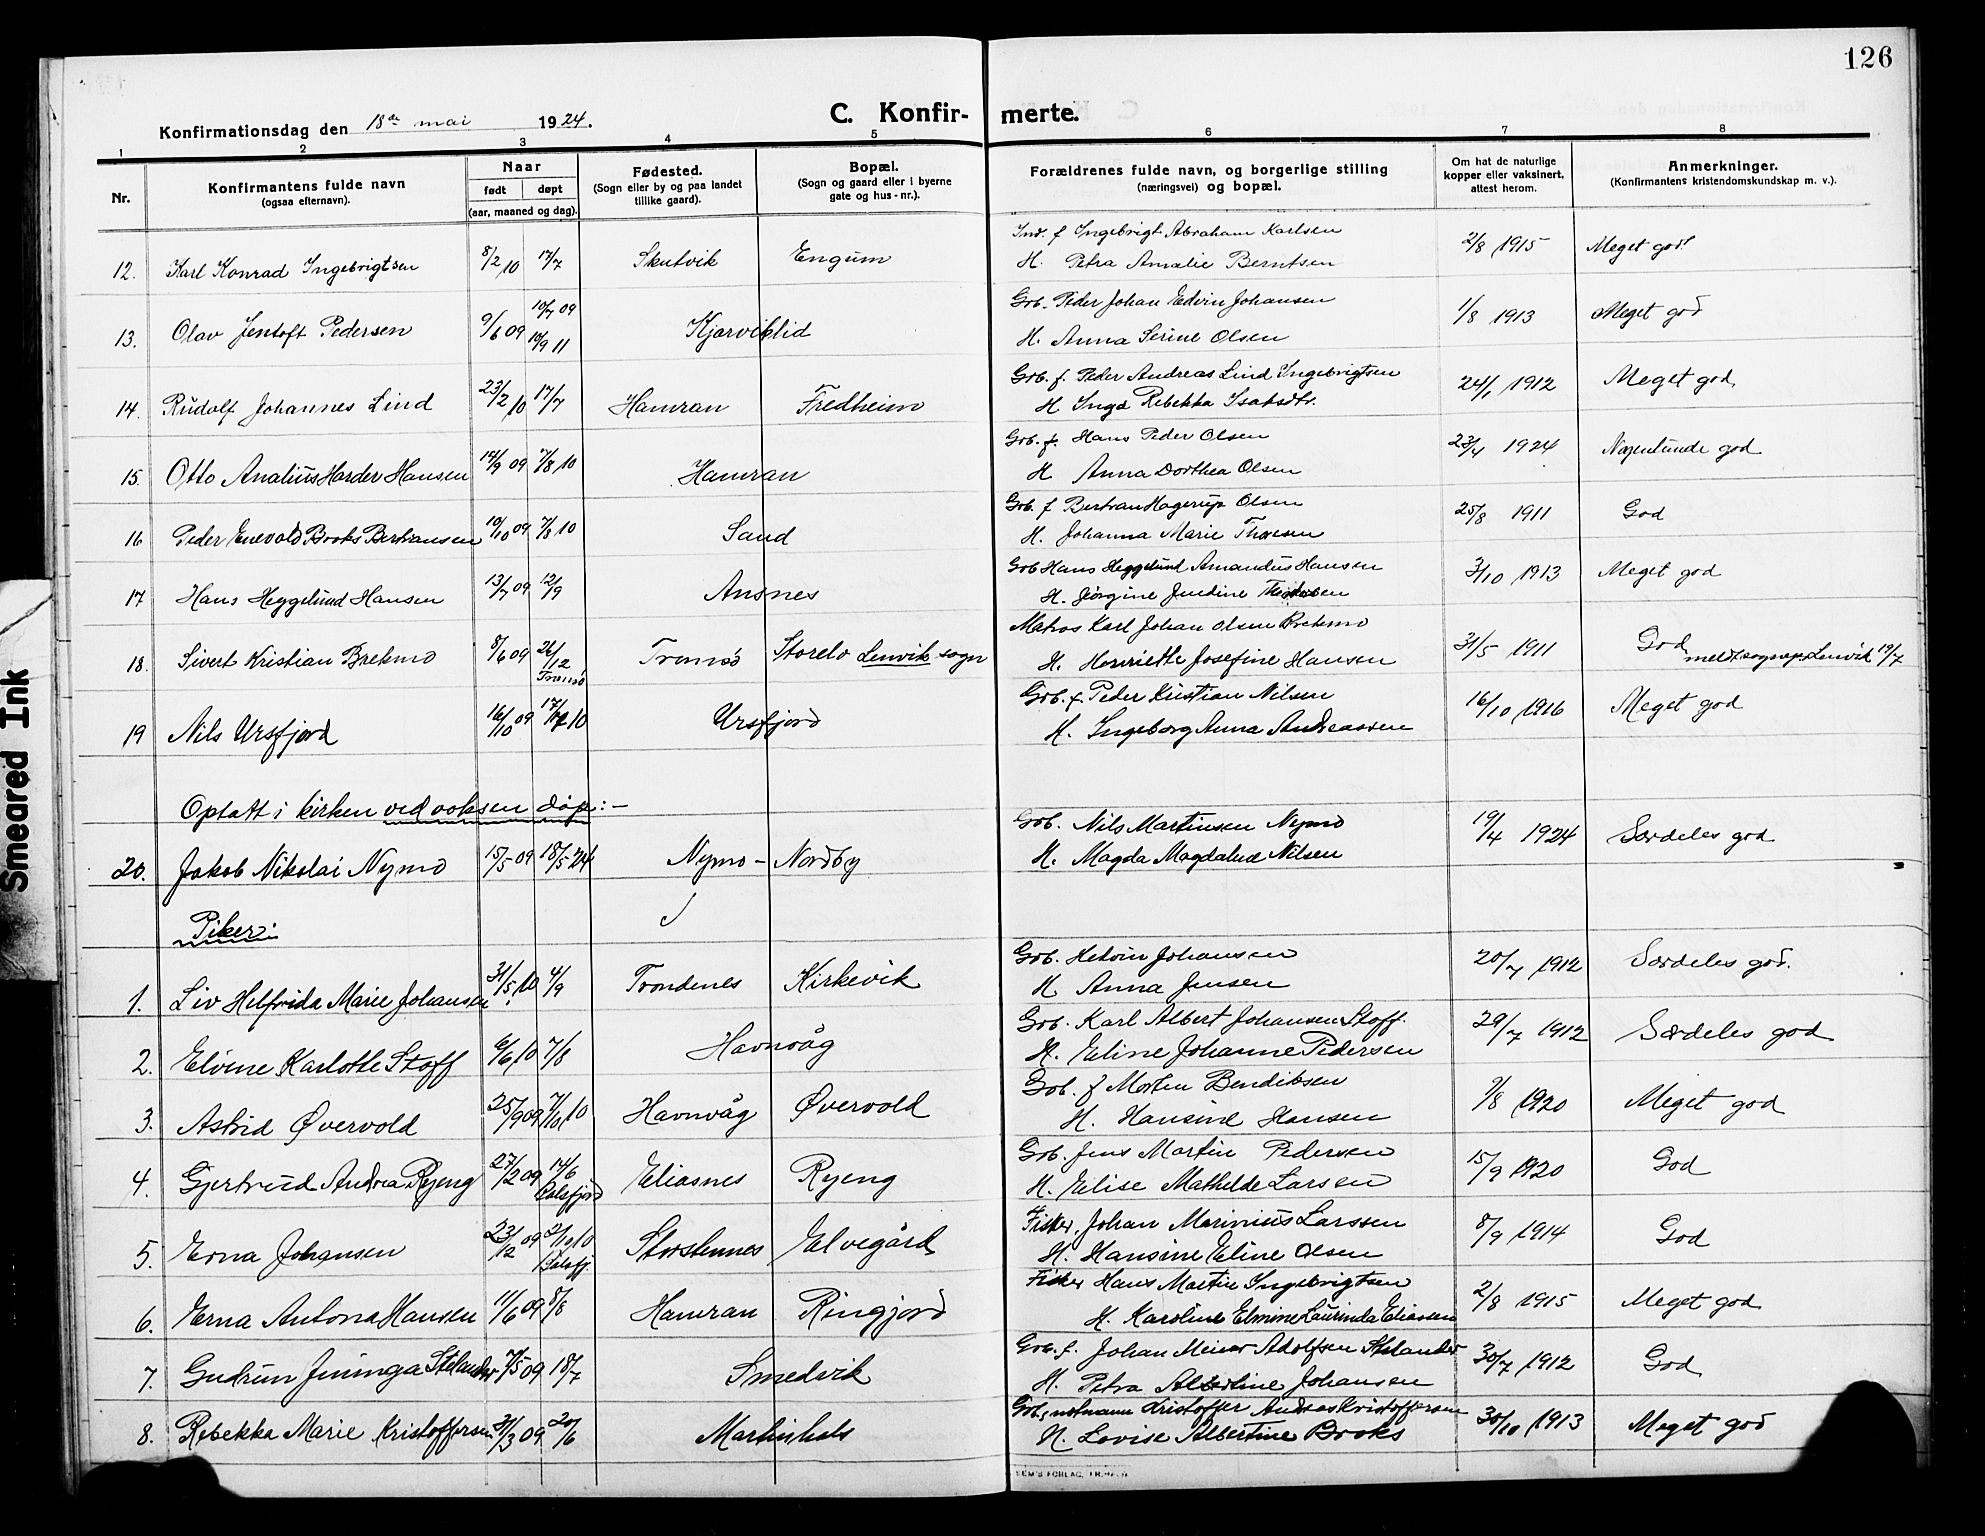 126
Konfirmationsdag den 18de mai 1924.
C. Konfir- merte.
1 2 3 4 5 6 7 8
Nr.
Konfirmantens fulde navn
(ogsaa efternavn).
Naar
født døpt
(aar, maaned og dag).
Fødested.
(Sogn eller by og paa landet
tillike gaard).
Bopæl.
(Sogn og gaard eller i byerne
gate og hus-nr.).
Forældrenes fulde navn, og borgerlige stilling
(næringsvei) og bopæl.
Om hat de naturlige
kopper eller vaksinert,
attest herom.
Anmerkninger.
(Konfirmantens kristendomskundskap m. v.).
Ind. f Ingebrigt Abraham Karlsen
12. Karl Konrad Ingebrigtsen 8/2 10 17/7 Skutvik Engum H. Petra Amalie Berntsen 2/8 1915 Meget god!
Gob. Peder Johan Edvin Johansen
13. Olav Jentoft Pedersen 9/6 09 10/7 09 10/9 11 Kjarviklid H. Anna Serine Olsen 1/8 1913 Meget god
Gob. f. Peder Andreas Lind Ingebrigtsen
14. Rudolf Johannes Lind 23/2 10 17/7 Hamran Fredheim H Inga Rebekka Isaksdtr. 24/1 1912 Meget god,
Gob. f. Hans Peder Olsen
15. Otto Analius Harder Hansen 14/9 09 7/8 10 Hamran H Anna Dorthea Olsen 23/4 1924 Nogenlunde god
Gob. f Bertran Hagerup Olsen
16 Peder Enevold Brooks Bertransen 10/10 09 7/8 10 Sand H. Johanna Marie Thoresen 25/8 1911 God
Gob Hans Heggelund Amandus Hansen
17 Hans Heggelund Hansen 13/7 09 12/9 Ansnes H. Jörgine Jendine 3/10 1913 Meget god
Matros Karl Johan Olsen Brekmo
18. Sivert Kristian Brekmo 8/6 09 26/12 Tromsö Tromsö Storelo Lenvik sogn H. Henriette Josefine Hansen 31/5 1911 God meldt sognepr. Lenvik 19/7
Gob. f. Peder Kristian Nilsen
19 Nils Ursfjord 16/10 09 17/7 10 Ursfjord H. Ingeborg Anna Andreassen 16/10 1916 Meget god
Optatt i kirken ved voksen dåp:-
Gob. Nils Martinsen Nymo
20. Jakob Nikolai Nymo 15/5 09 18/5 24 Nymo - Nordby H. Magda Magdalene Nilsen 19/4 1924 Særdeles god
Piker:
Gob. Hetvin Johansen
1. Liv Helfrida Marie Johansen 31/5 10 4/9 Trondenes Kirkevik H Anna Jensen 20/7 1912 Særdeles god.
Gob. Karl Albert Johansen Stoff.
2. Elvine Karlotte Stoff 6/6 10 7/8 Havnvåg H. Eline Johanne Pedersen 29/7 1912 Særdeles god
Gob. f Morten Bendiksen
3. Astrid Øvervold 25/9 09 7/10 10 Havnvåg Øvervold H. Hansine Hansen 9/8 1920 Meget god
Gob. Jens Martin Pedersen
4. Gjertrud Andrea Ryeng 27/2 09 14/6 Balsfjord Eliasnes Ryeng H. Elise Mathilde Larsen 15/9 1920 God
Fisker, Johan Marinius Larssen
5. Erna Johansen 23/12 09 2/10 10 Balsfj. Storstennes Elvegård H. Hansine Eline Olsen 8/9 1914 God
Fisker Hans Martin Ingebrigtsen
6. Erna Antona Hansen 11/6 09 8/8 Hamran Ringjord H. Karoline Elmine Laurinda Eliassen 2/8 1915 Meget god
Gob. f. Johan Meier Adolfsen Stelander
7. Gudrun Jeninga Stelander 7/5 09 18/7 Smedvik H. Petra Albertine Johansen 30/7 1912 God
Gob, notmann Kristoffer Andreas Kristoffersen
8. Rebekka Marie Kristoffersen 31/3 09 20/6 Martinhals H. Lovise Albertine Brooks 30/10 1913 Meget god
SEM'S FORLAG, TR.HALD
Smeared Ink